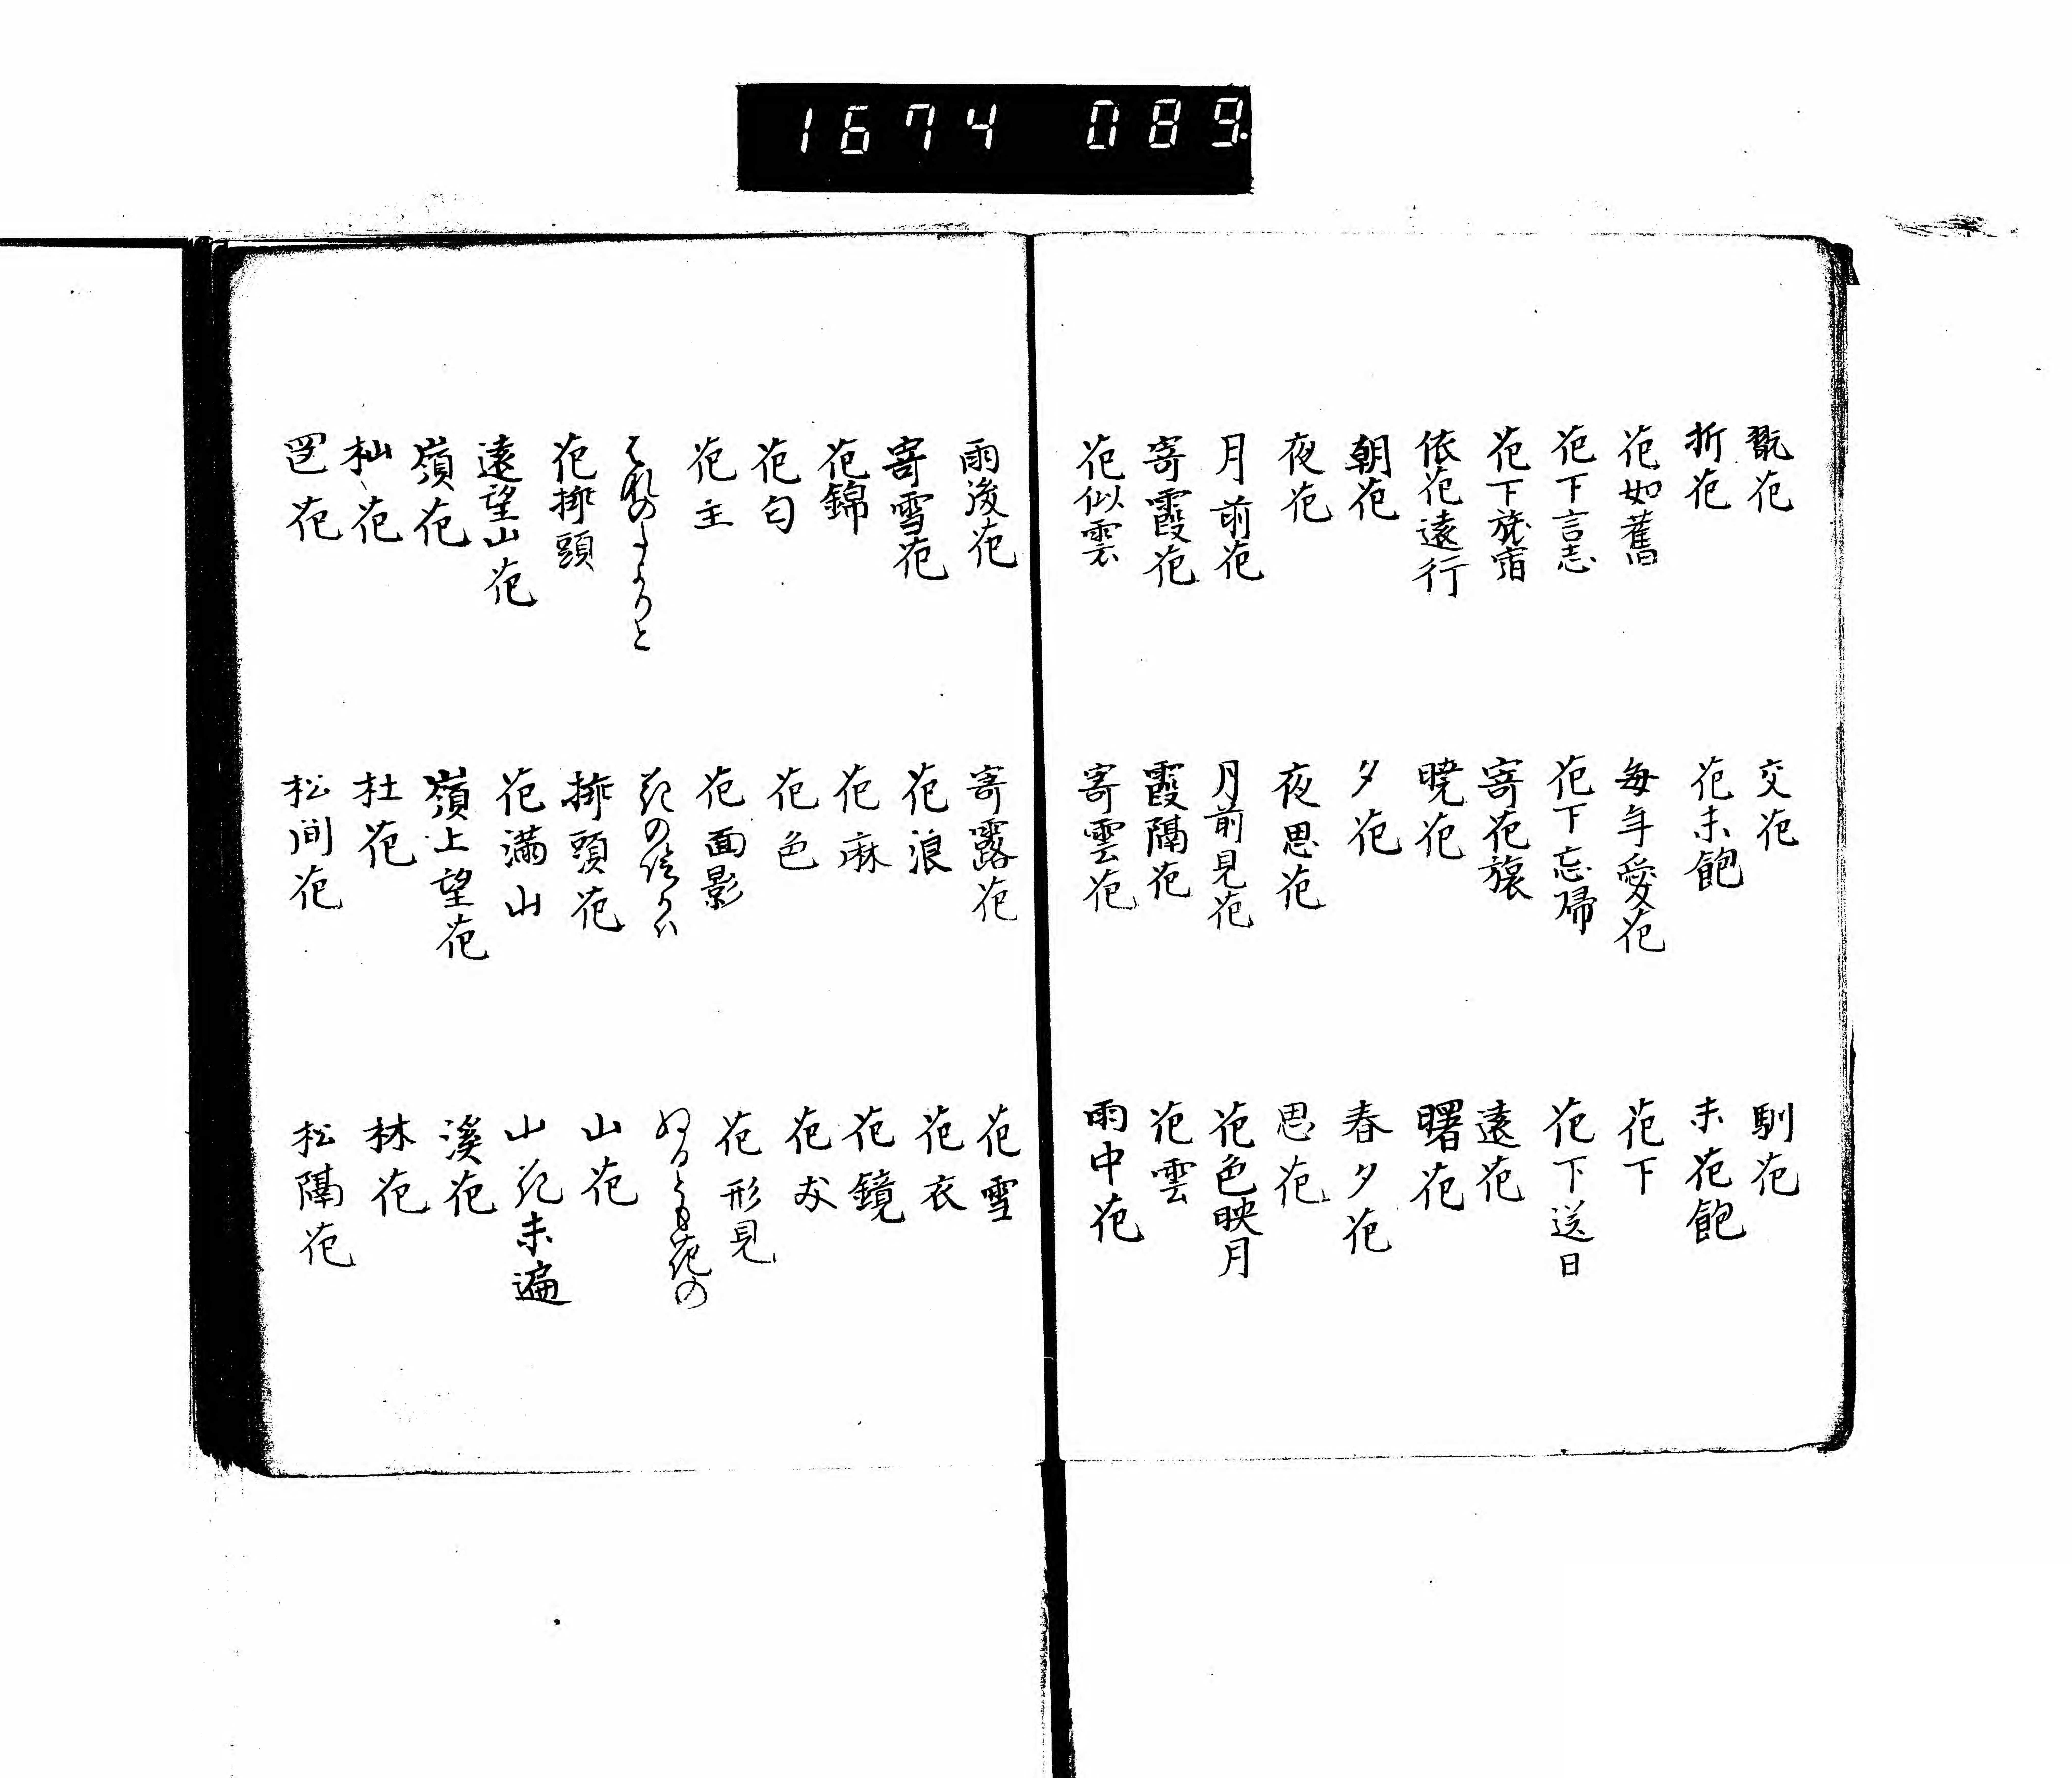 1674 089
翫花
交花
馴花
折花
花未飽
未花飽
花如舊
毎年愛花
花下
花下言志
花下忘帰
花下送日
花下旅宿
寄花旅
遠花
依花遠行
暁花
曙花
朝花
夕花
春夕花
夜花
夜思花
思花
月前花
月前見花
花色映月
寄霞花
霞隔花
花雲
花似雲
寄雲花
雨中花
雨後花
寄露花
花雪
寄雪花
花浪
花衣
花錦
花麻
花鏡
花匂
花色
花友
花主
花面影
花形見
はなのたよりと
花の
ぬるとも花の
花挿頭
挿頭花
山花
遠望山花
花満山
山花未遍
嶺花
嶺上望花
溪花
杣花
杜花
林花
岡花
松間花
松隔花